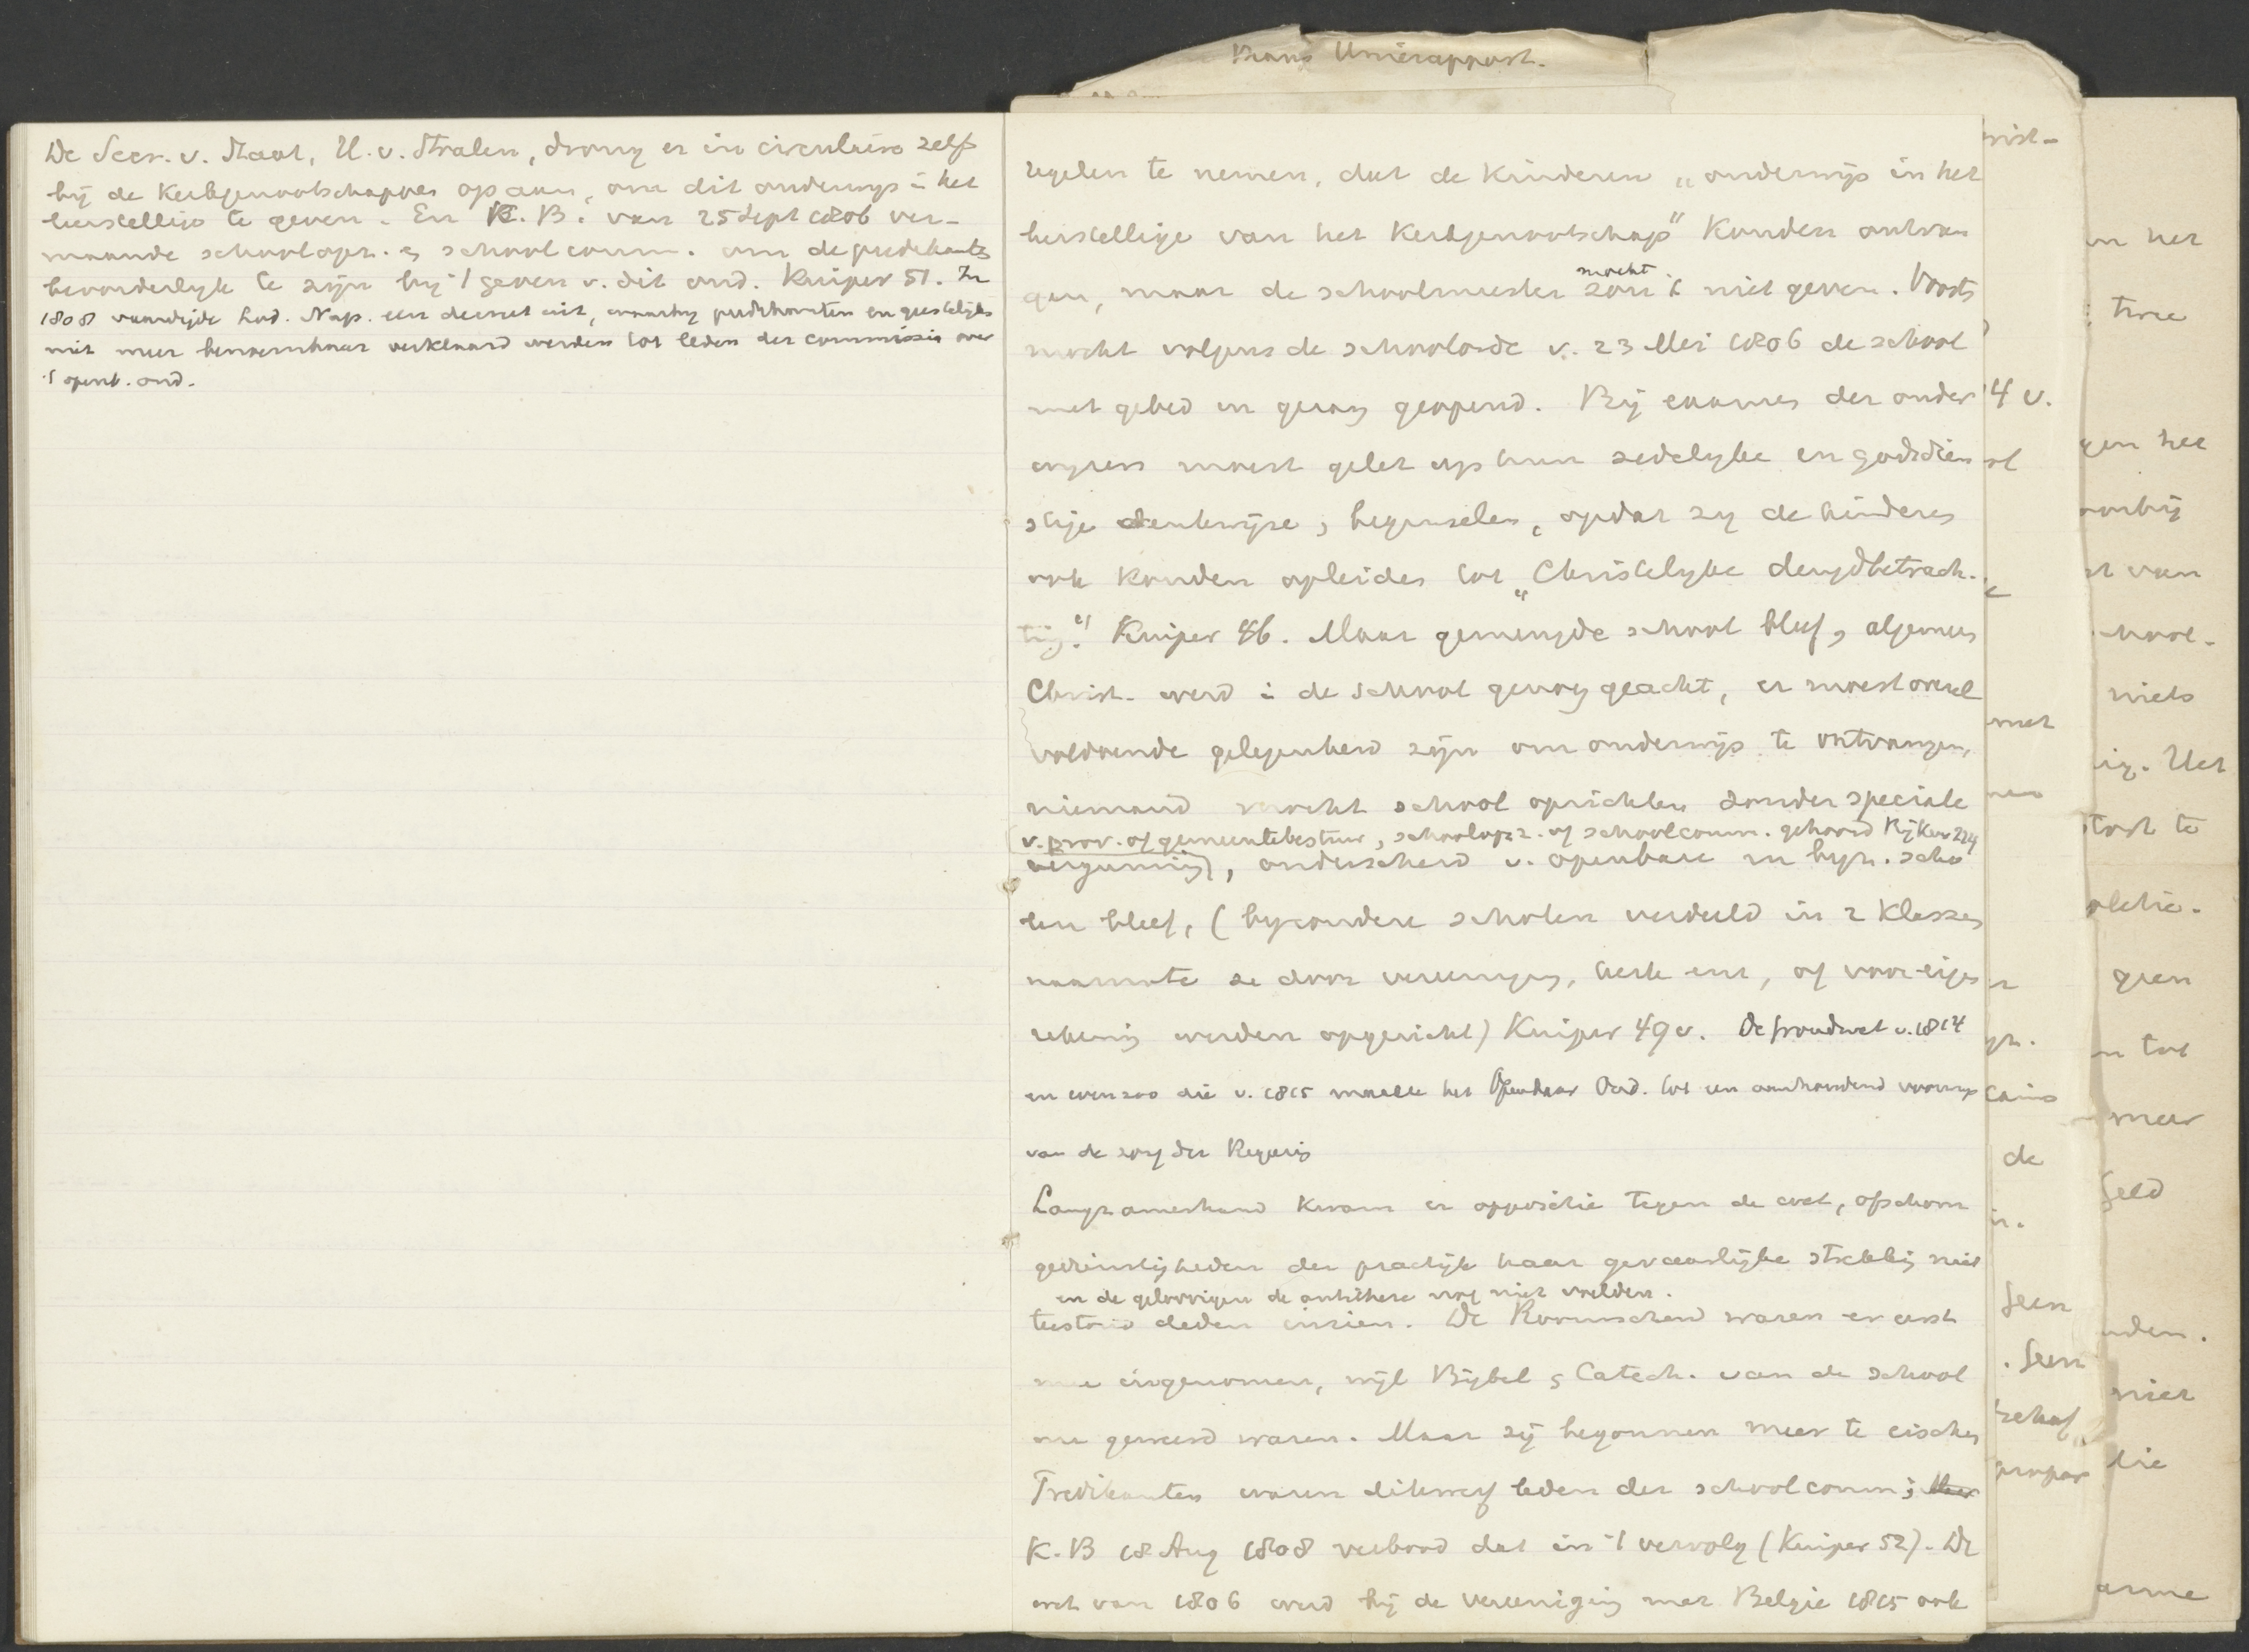 Kranz Unierapport.
De Secr. v. Staat, H. v. Stralen, drong er in circulaire zelf
bij de Kerkgenootschappen op aan, om dit onderwijs i het
leerstellige te geven. En K. B. van 25 Sept 1806 ver-
maande schoolopz. en schoolcomm. om de predikants
bevorderlijk te zijn bij 't geven v. dit ond. Kuiper 51. In
1808 vaardigde Lod. Nap. een decreet uit, waarbij predikanten en geestelijken
niet meer benoembaar verklaard werden tot leden der commissies over
't openb. ond.
regelen te nemen, dat de Kinderen „onderwijs in het
leerstellige van het Kerkgenootschap" Konden ontvan
gen, maar de schoolmeester mocht zou 't niet geven. Voorts
mocht volgens de schoolorde v. 23 Mei 1806 de school
met gebed en gezang geopend. Bij examens der onder
wijzers moest gelet op hun zedelijke en godsdien
stige denkwijze, beginselen, opdat zij de kinderen
ook konden opleiden tot „Christelijke deugdbetrach-
ting." Kuiper 46. Maar gemengde school bleef, algemeen
Christ. werd i de school genoeg geacht, er moest overal
voldoende gelegenheid zijn om onderwijs te ontvangen,
niemand mocht school oprichten zonder speciale
(v. prov. of gemeentebestuur, schoolopz. of schoolcomm. gehoord Rijker 224
vergunning), onderscheid v. openbare en byz. scho
len bleef, (byzondere scholen verdeeld in 2 Klassen
naarmate ze door vereeniging, kerk enz, of voor eigen
rekening werden opgericht) Kuiper 49 v. De Grondwet v. 1814
en evenzoo die v. 1815 maakte het Openbaar Ond. tot een aanhoudend voorwerp
van de zorg der Regering
Langzamerhand kwam er oppositie tegen de wet, ofschoon
godsdienstigheden der practijk haar gevaarlijke strekking niet
en de geloovigen de antithese nog niet voelden.
terstond deden inzien. De Roomschen waren er eerst
mee ingenomen, wijl Bijbel en Catech. van de school
nu geweerd waren. Maar zij begonnen meer te eischen
Predikanten waren dikwerf leden der schoolcomm;
K. B 18 Aug 1808 verbood dat in 't vervolg (Kuiper 52). De
wet van 1806 werd bij de vereeniging met Belgie 1815 ook